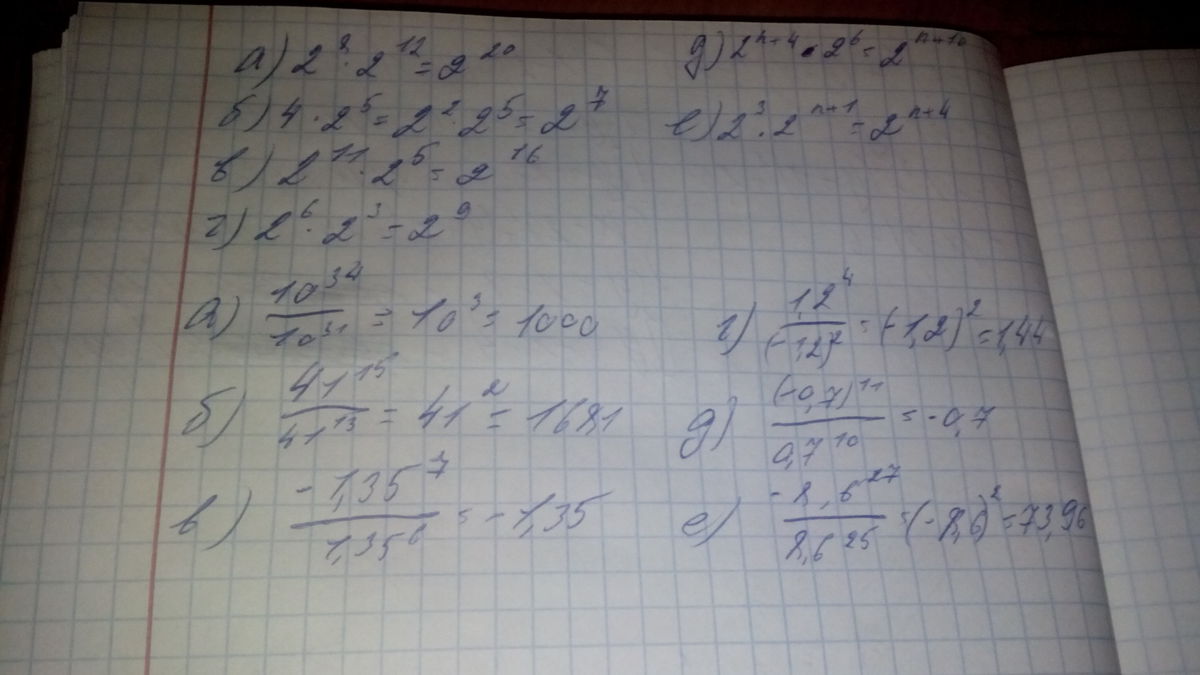 а) 2⁸ · 2¹² = 2²⁰
б) 4 · 2⁵ = 2² · 2⁵ = 2⁷
в) 2¹¹ · 2⁵ = 2¹⁶
г) 2⁶ · 2³ = 2⁹
д) 2ⁿ⁺⁴ · 2⁶ = 2ⁿ⁺¹⁰
е) 2³ · 2ⁿ⁺¹ = 2ⁿ⁺⁴
а) 10³⁴ / 10³¹ = 10³ = 1000
б) 41¹⁵ / 41¹³ = 41² = 1681
в) -1,35⁷ / 1,35⁶ = -1,35
г) 1,2⁴ / (-1,2)² = (-1,2)² = 1,44
д) (-0,7)¹¹ / 0,7¹⁰ = -0,7
е) -8,6²⁷ / 8,6²⁵ = (-8,6)² = 73,96